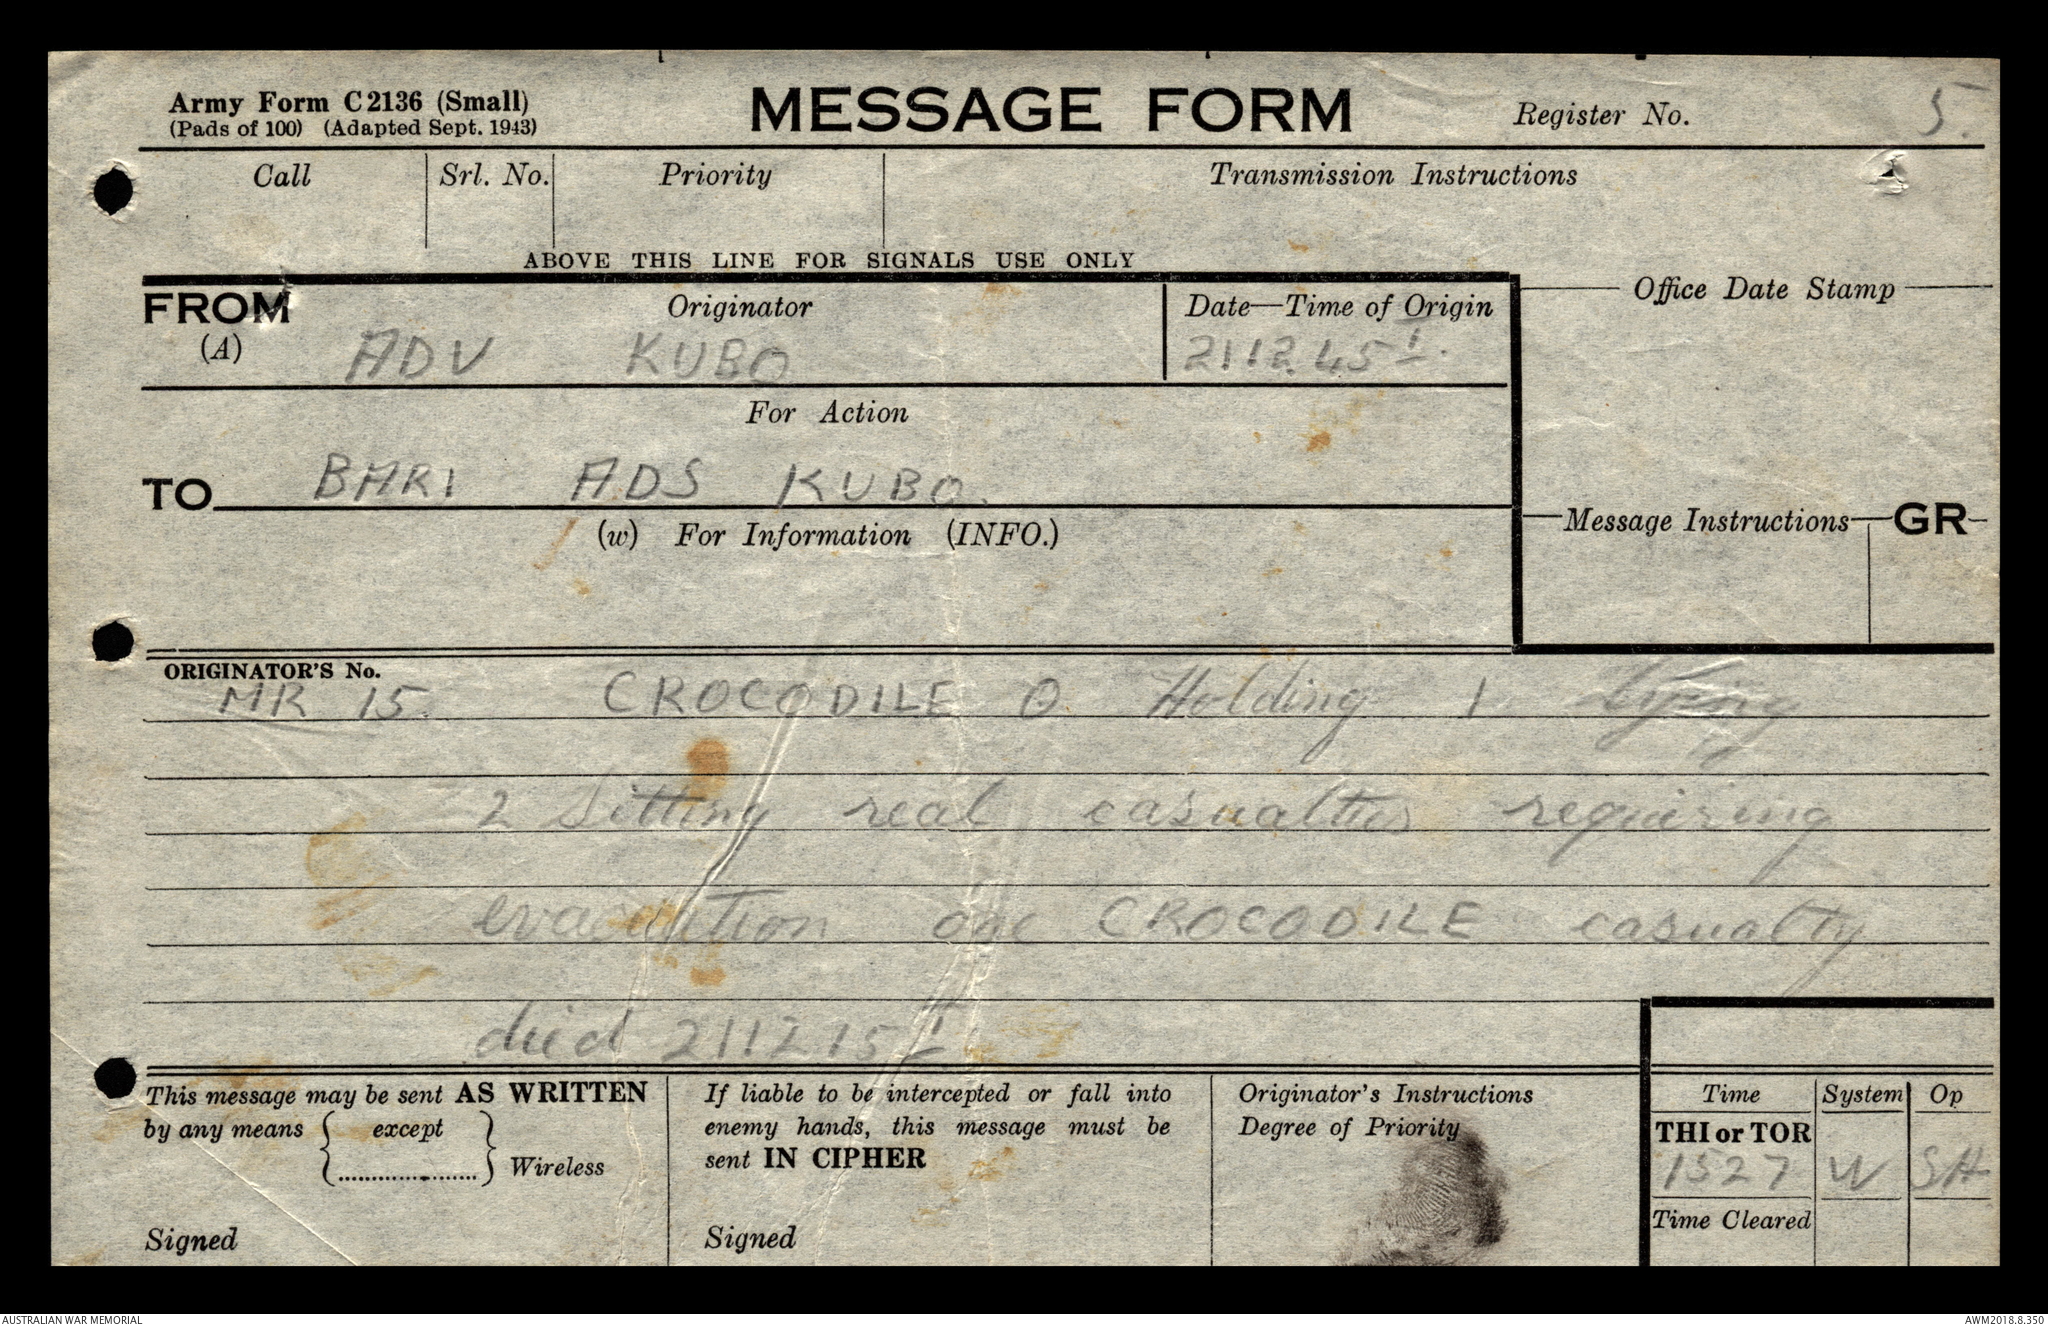 Army Form C2136 (Small)
(Pads of 100) (Adapted Sept. 1943)
MESSAGE FORM
Register No.
5.
Call
Srl. No.
Priority
Transmission Instructions
ABOVE THIS LINE FOR SIGNALS USE ONLY
FROM
(A)
Originator
ADV KUBO
Date—Time of Origin
211245 I.
Office Date Stamp
For Action
TO BARI ADS KUBO.
(w) For Information (INFO.)
Message Instructions GR
ORIGINATOR'S No.
MR 15. CROCODILE O Holding 1 lying
2 sitting real casualties requiring
evacuation one CROCODILE casualty
died 211215 I
This message may be sent AS WRITTEN
by any means { except } Wireless
Signed
If liable to be intercepted or fall into
enemy hands, this message must be
sent IN CIPHER
Signed
Originator's Instructions
Degree of Priority
Time System Op
THI or TOR
1527 W SH
Time Cleared
AUSTRALIAN WAR MEMORIAL
AWM2018.8.350